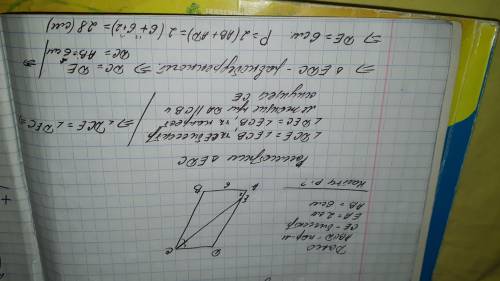 Дано
ABCD - пар-м
CE - биссектр
EA = 2см
AB = 6см
Найти P - ?
A
E
6
B
C
D
Рассмотрим ΔEDC
∠DCE = ∠ECB, т.к. биссектр
∠DEC = ∠ECB, как накрест
лежащие при DA || CB и
секущей CE
⇒ ∠DCE = ∠DEC ⇒
⇒ ΔEDC - равнобедренный ⇒ DC = DE
DC = AB = 6см
⇒
⇒ DE = 6см P = 2(AB + AD) = 2(6+6+2) = 28 (см)